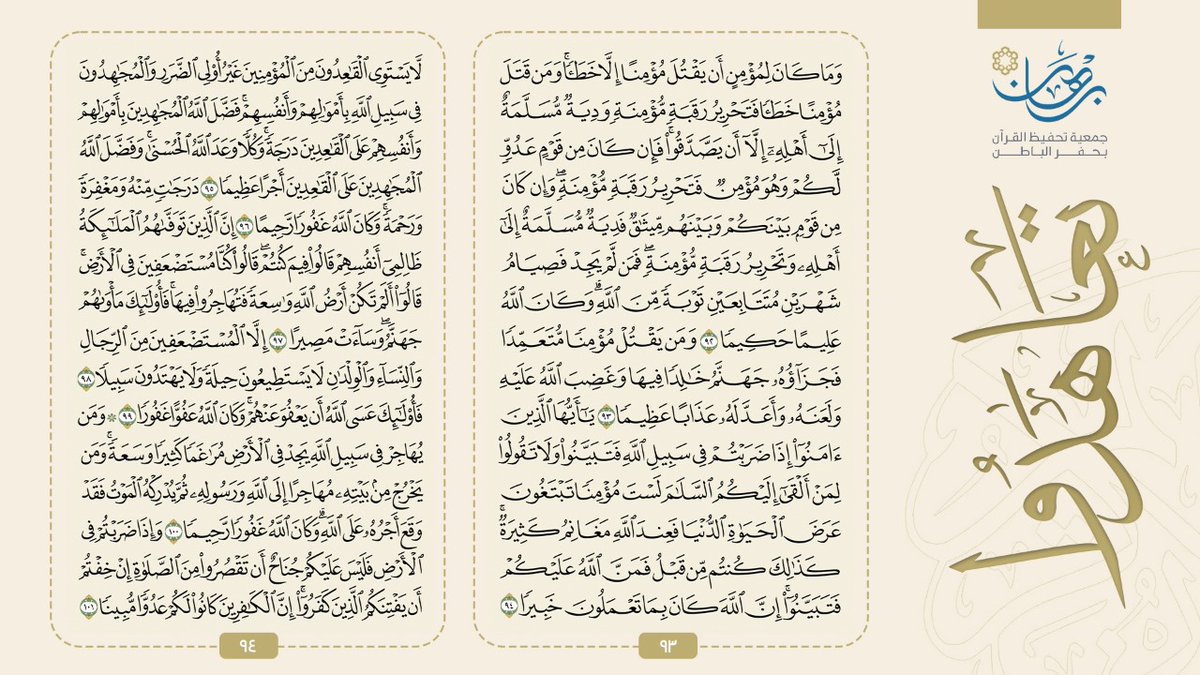 برهان
جمعية تحفيظ القرآن
بحفر الباطن
تعاهدوا
وَمَا كَانَ لِمُؤْمِنٍ أَن يَقْتُلَ مُؤْمِنًا إِلَّا خَطَـًٔا ۚ وَمَن قَتَلَ
مُؤْمِنًا خَطَـًٔا فَتَحْرِيرُ رَقَبَةٍ مُّؤْمِنَةٍ وَدِيَةٌ مُّسَلَّمَةٌ
إِلَىٰٓ أَهْلِهِۦٓ إِلَّآ أَن يَصَّدَّقُوا۟ ۚ فَإِن كَانَ مِن قَوْمٍ عَدُوٍّ
لَّكُمْ وَهُوَ مُؤْمِنٌ فَتَحْرِيرُ رَقَبَةٍ مُّؤْمِنَةٍ ۖ وَإِن كَانَ
مِن قَوْمٍۭ بَيْنَكُمْ وَبَيْنَهُم مِّيثَـٰقٌ فَدِيَةٌ مُّسَلَّمَةٌ إِلَىٰٓ
أَهْلِهِۦ وَتَحْرِيرُ رَقَبَةٍ مُّؤْمِنَةٍ ۖ فَمَن لَّمْ يَجِدْ فَصِيَامُ
شَهْرَيْنِ مُتَتَابِعَيْنِ تَوْبَةً مِّنَ ٱللَّهِ ۗ وَكَانَ ٱللَّهُ
عَلِيمًا حَكِيمًا ٩٢ وَمَن يَقْتُلْ مُؤْمِنًا مُّتَعَمِّدًا
فَجَزَآؤُهُۥ جَهَنَّمُ خَـٰلِدًا فِيهَا وَغَضِبَ ٱللَّهُ عَلَيْهِ
وَلَعَنَهُۥ وَأَعَدَّ لَهُۥ عَذَابًا عَظِيمًا ٩٣ يَـٰٓأَيُّهَا ٱلَّذِينَ
ءَامَنُوٓا۟ إِذَا ضَرَبْتُمْ فِى سَبِيلِ ٱللَّهِ فَتَبَيَّنُوا۟ وَلَا تَقُولُوا۟
لِمَنْ أَلْقَىٰٓ إِلَيْكُمُ ٱلسَّلَـٰمَ لَسْتَ مُؤْمِنًا تَبْتَغُونَ
عَرَضَ ٱلْحَيَوٰةِ ٱلدُّنْيَا فَعِندَ ٱللَّهِ مَغَانِمُ كَثِيرَةٌ ۚ
كَذَٰلِكَ كُنتُم مِّن قَبْلُ فَمَنَّ ٱللَّهُ عَلَيْكُمْ
فَتَبَيَّنُوٓا۟ ۚ إِنَّ ٱللَّهَ كَانَ بِمَا تَعْمَلُونَ خَبِيرًا ٩٤
٩٣
لَّا يَسْتَوِى ٱلْقَـٰعِدُونَ مِنَ ٱلْمُؤْمِنِينَ غَيْرُ أُو۟لِى ٱلضَّرَرِ وَٱلْمُجَـٰهِدُونَ
فِى سَبِيلِ ٱللَّهِ بِأَمْوَٰلِهِمْ وَأَنفُسِهِمْ ۚ فَضَّلَ ٱللَّهُ ٱلْمُجَـٰهِدِينَ بِأَمْوَٰلِهِمْ
وَأَنفُسِهِمْ عَلَى ٱلْقَـٰعِدِينَ دَرَجَةً ۚ وَكُلًّا وَعَدَ ٱللَّهُ ٱلْحُسْنَىٰ ۚ وَفَضَّلَ ٱللَّهُ
ٱلْمُجَـٰهِدِينَ عَلَى ٱلْقَـٰعِدِينَ أَجْرًا عَظِيمًا ٩٥ دَرَجَـٰتٍ مِّنْهُ وَمَغْفِرَةً
وَرَحْمَةً ۚ وَكَانَ ٱللَّهُ غَفُورًا رَّحِيمًا ٩٦ إِنَّ ٱلَّذِينَ تَوَفَّىٰهُمُ ٱلْمَلَـٰٓئِكَةُ
ظَالِمِىٓ أَنفُسِهِمْ قَالُوا۟ فِيمَ كُنتُمْ ۖ قَالُوا۟ كُنَّا مُسْتَضْعَفِينَ فِى ٱلْأَرْضِ ۚ
قَالُوٓا۟ أَلَمْ تَكُنْ أَرْضُ ٱللَّهِ وَٰسِعَةً فَتُهَاجِرُوا۟ فِيهَا ۚ فَأُو۟لَـٰٓئِكَ مَأْوَىٰهُمْ
جَهَنَّمُ ۖ وَسَآءَتْ مَصِيرًا ٩٧ إِلَّا ٱلْمُسْتَضْعَفِينَ مِنَ ٱلرِّجَالِ
وَٱلنِّسَآءِ وَٱلْوِلْدَٰنِ لَا يَسْتَطِيعُونَ حِيلَةً وَلَا يَهْتَدُونَ سَبِيلًا ٩٨
فَأُو۟لَـٰٓئِكَ عَسَى ٱللَّهُ أَن يَعْفُوَ عَنْهُمْ ۚ وَكَانَ ٱللَّهُ عَفُوًّا غَفُورًا ٩٩ ۞ وَمَن
يُهَاجِرْ فِى سَبِيلِ ٱللَّهِ يَجِدْ فِى ٱلْأَرْضِ مُرَٰغَمًا كَثِيرًا وَسَعَةً ۚ وَمَن
يَخْرُجْ مِنۢ بَيْتِهِۦ مُهَاجِرًا إِلَى ٱللَّهِ وَرَسُولِهِۦ ثُمَّ يُدْرِكْهُ ٱلْمَوْتُ فَقَدْ
وَقَعَ أَجْرُهُۥ عَلَى ٱللَّهِ ۗ وَكَانَ ٱللَّهُ غَفُورًا رَّحِيمًا ١٠٠ وَإِذَا ضَرَبْتُمْ فِى
ٱلْأَرْضِ فَلَيْسَ عَلَيْكُمْ جُنَاحٌ أَن تَقْصُرُوا۟ مِنَ ٱلصَّلَوٰةِ إِنْ خِفْتُمْ
أَن يَفْتِنَكُمُ ٱلَّذِينَ كَفَرُوٓا۟ ۚ إِنَّ ٱلْكَـٰفِرِينَ كَانُوا۟ لَكُمْ عَدُوًّا مُّبِينًا ١٠١
٩٤